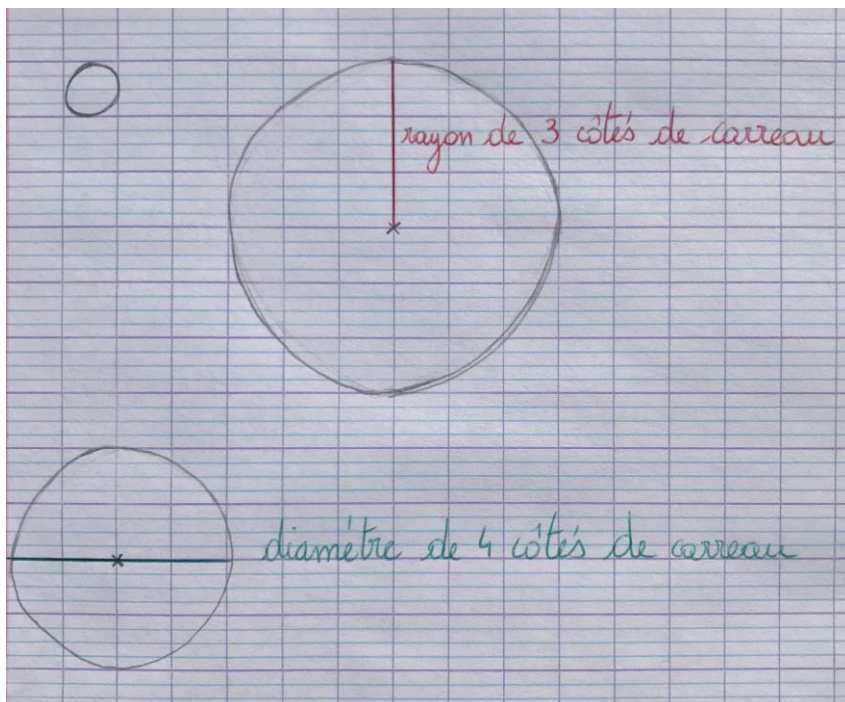 rayon de 3 côtés de carreau
diamétre de 4 côtés de carreau